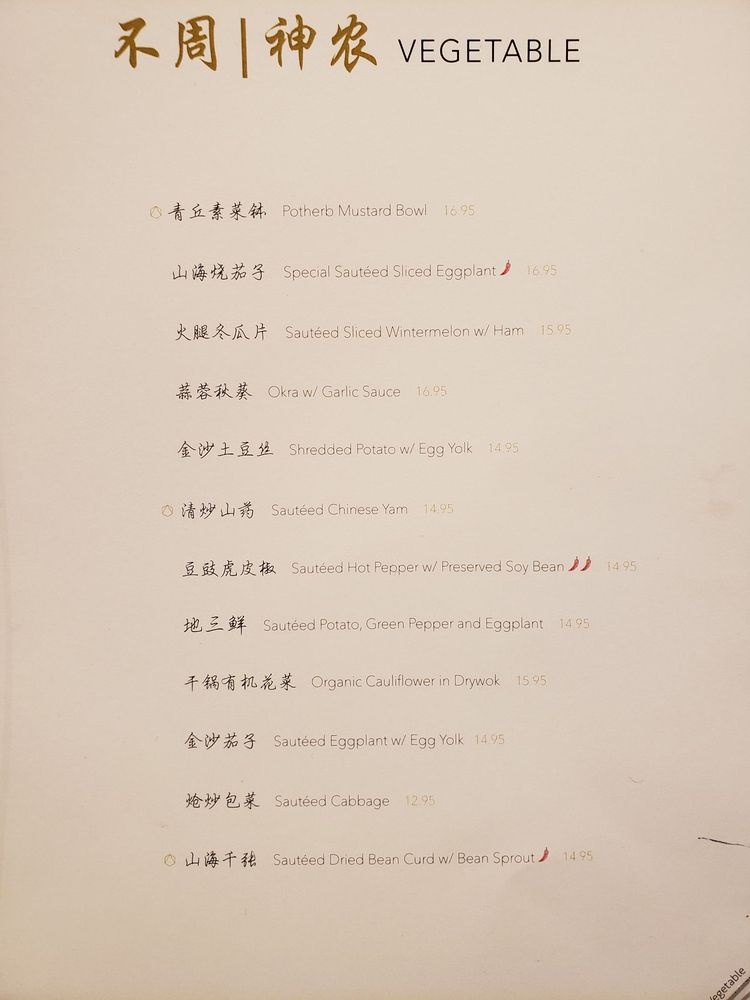 不周|神农 VEGETABLE
青丘素菜钵 Potherb Mustard Bowl 16.95
山海烧茄子 Special Sautéed Sliced Eggplant 16.95
火腿冬瓜片 Sautéed Sliced Wintermelon w/ Ham 15.95
蒜蓉秋葵 Okra w/ Garlic Sauce 16.95
金沙土豆丝 Shredded Potato w/ Egg Yolk 14.95
清炒山药 Sautéed Chinese Yam 14.95
豆豉虎皮椒 Sautéed Hot Pepper w/ Preserved Soy Bean 14.95
地三鲜 Sautéed Potato, Green Pepper and Eggplant 14.95
干锅有机花菜 Organic Cauliflower in Drywok 15.95
金沙茄子 Sautéed Eggplant w/ Egg Yolk 14.95
炝炒包菜 Sautéed Cabbage 12.95
山海千张 Sautéed Dried Bean Curd w/ Bean Sprout 14.95